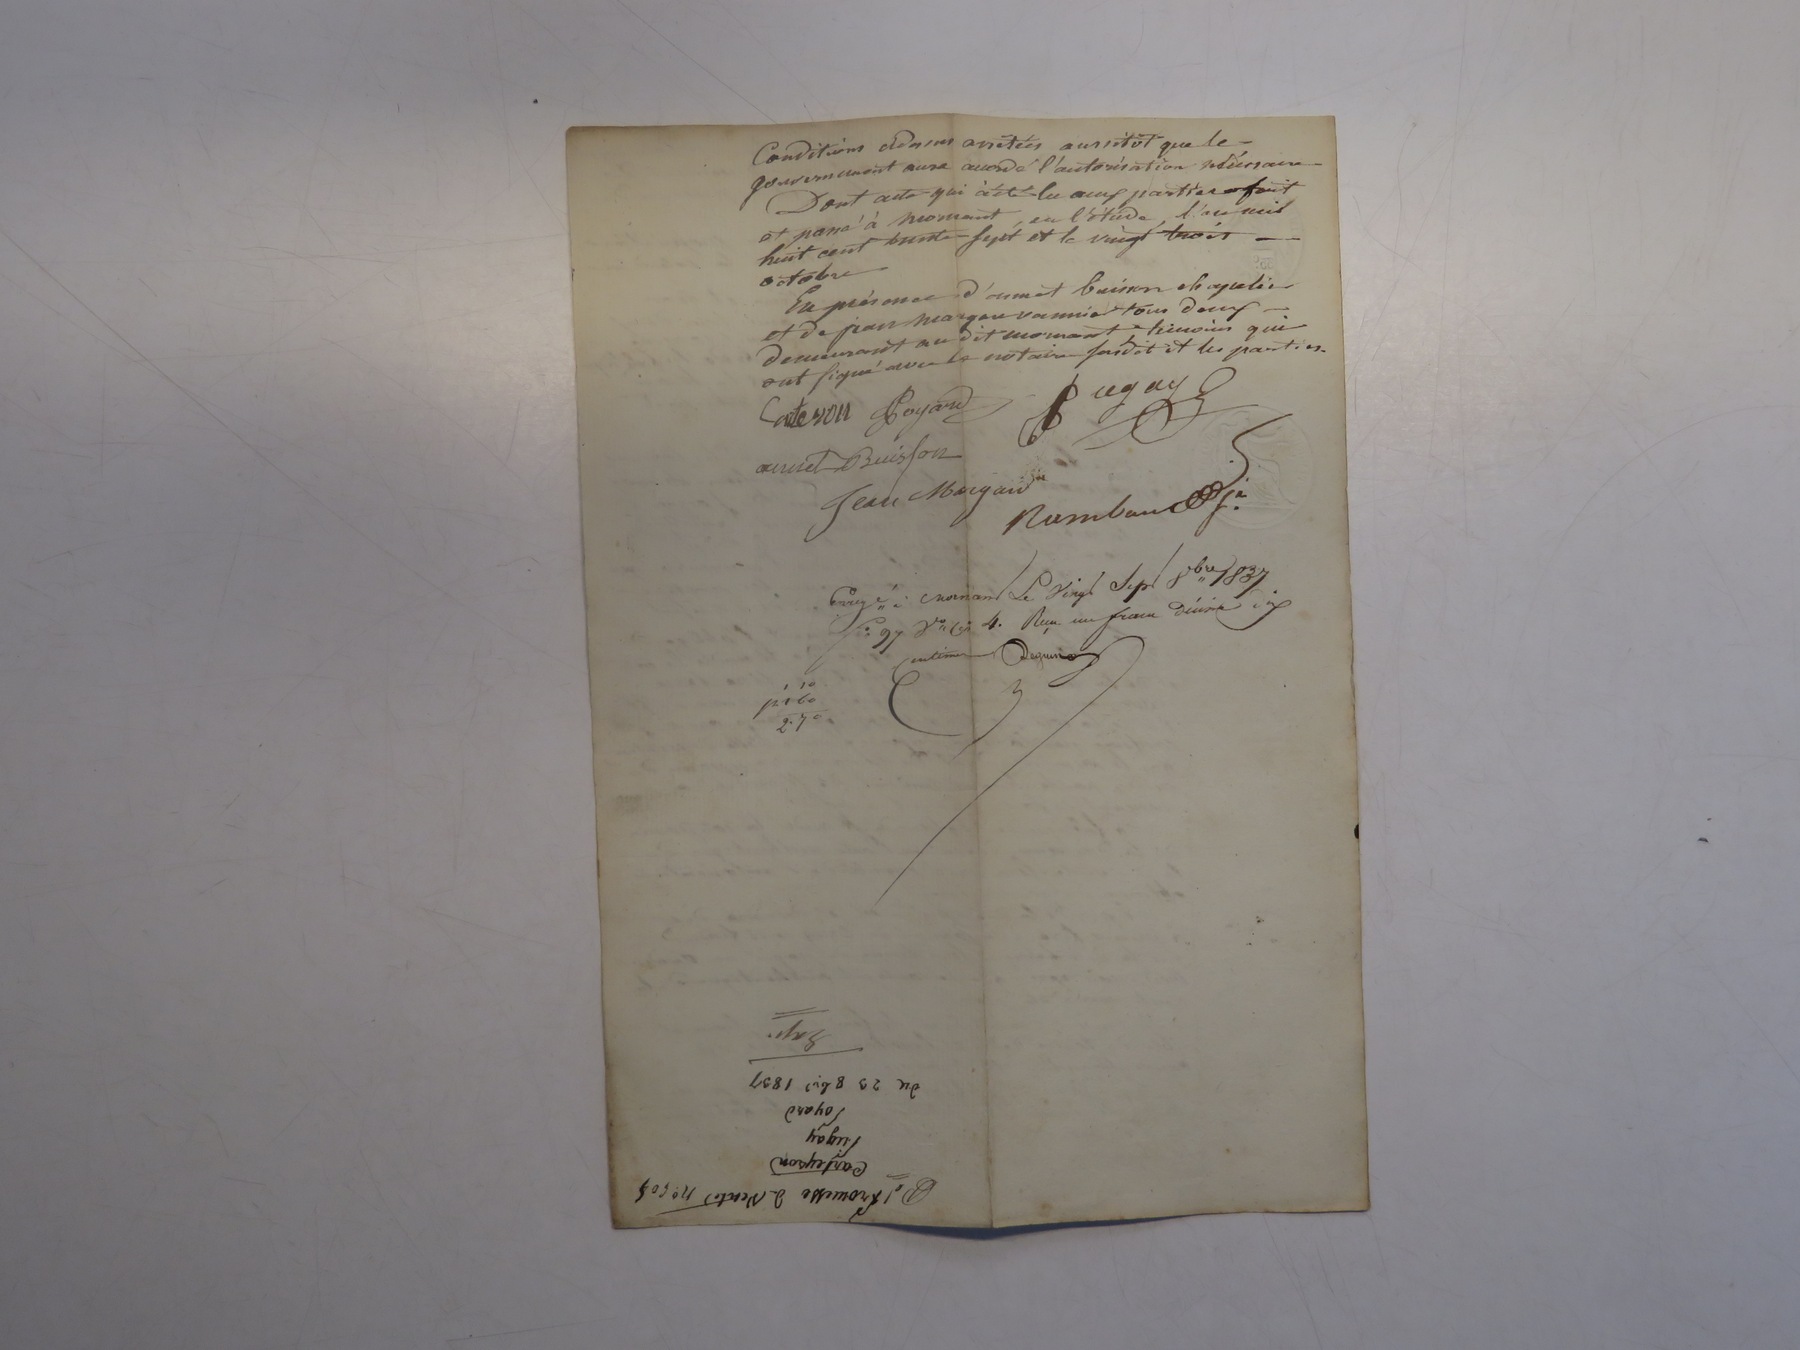 Conditions cidessus arrêtées aussitôt que le
gouvernement aura accordé l'autorisation nécessaire
Dont acte qui a été lu aux parties fait
et passé à mornant, en l'étude, l'an mil
huit cent trente sept et le vingt trois
octobre
En présence d'annet buisson chapelier
et de jean margau vannier tous deux
demeurant au dit mornant témoins qui
ont signé avec le notaire susdit et les parties.
Poyard Pugay
annet Buisson
Jean
Rambaud
Enregé à Mornant Le vingt Sept 8bre 1837
fo 97 Vo Ce 4. Reçu un franc décime dix
centimes
1 10
1 60
2.70
Del Promesse de Vente no 504
Carteyron
Pugay
Poyard
du 23 8bre 1837
Expe.